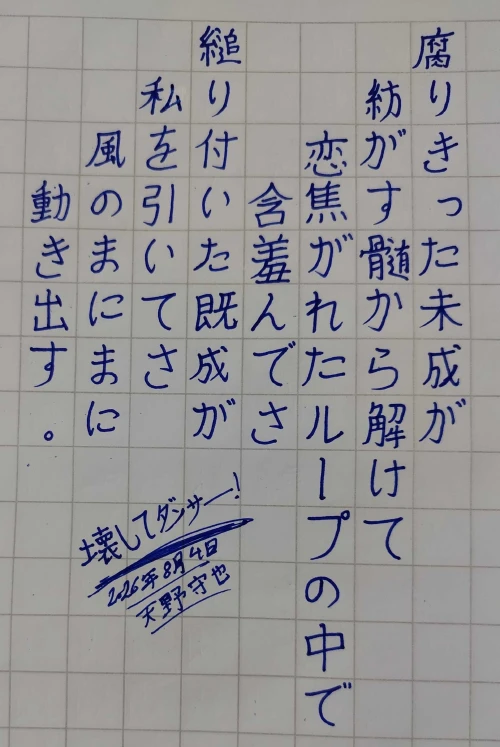 腐りきった未成が
紡がす髄から解けて
恋焦がれたループの中で
含羞んでさ
縋り付いた既成が
私を引いてさ
風のまにまに
動き出す。
壊してダンサー!
2026年8月4日
天野守也